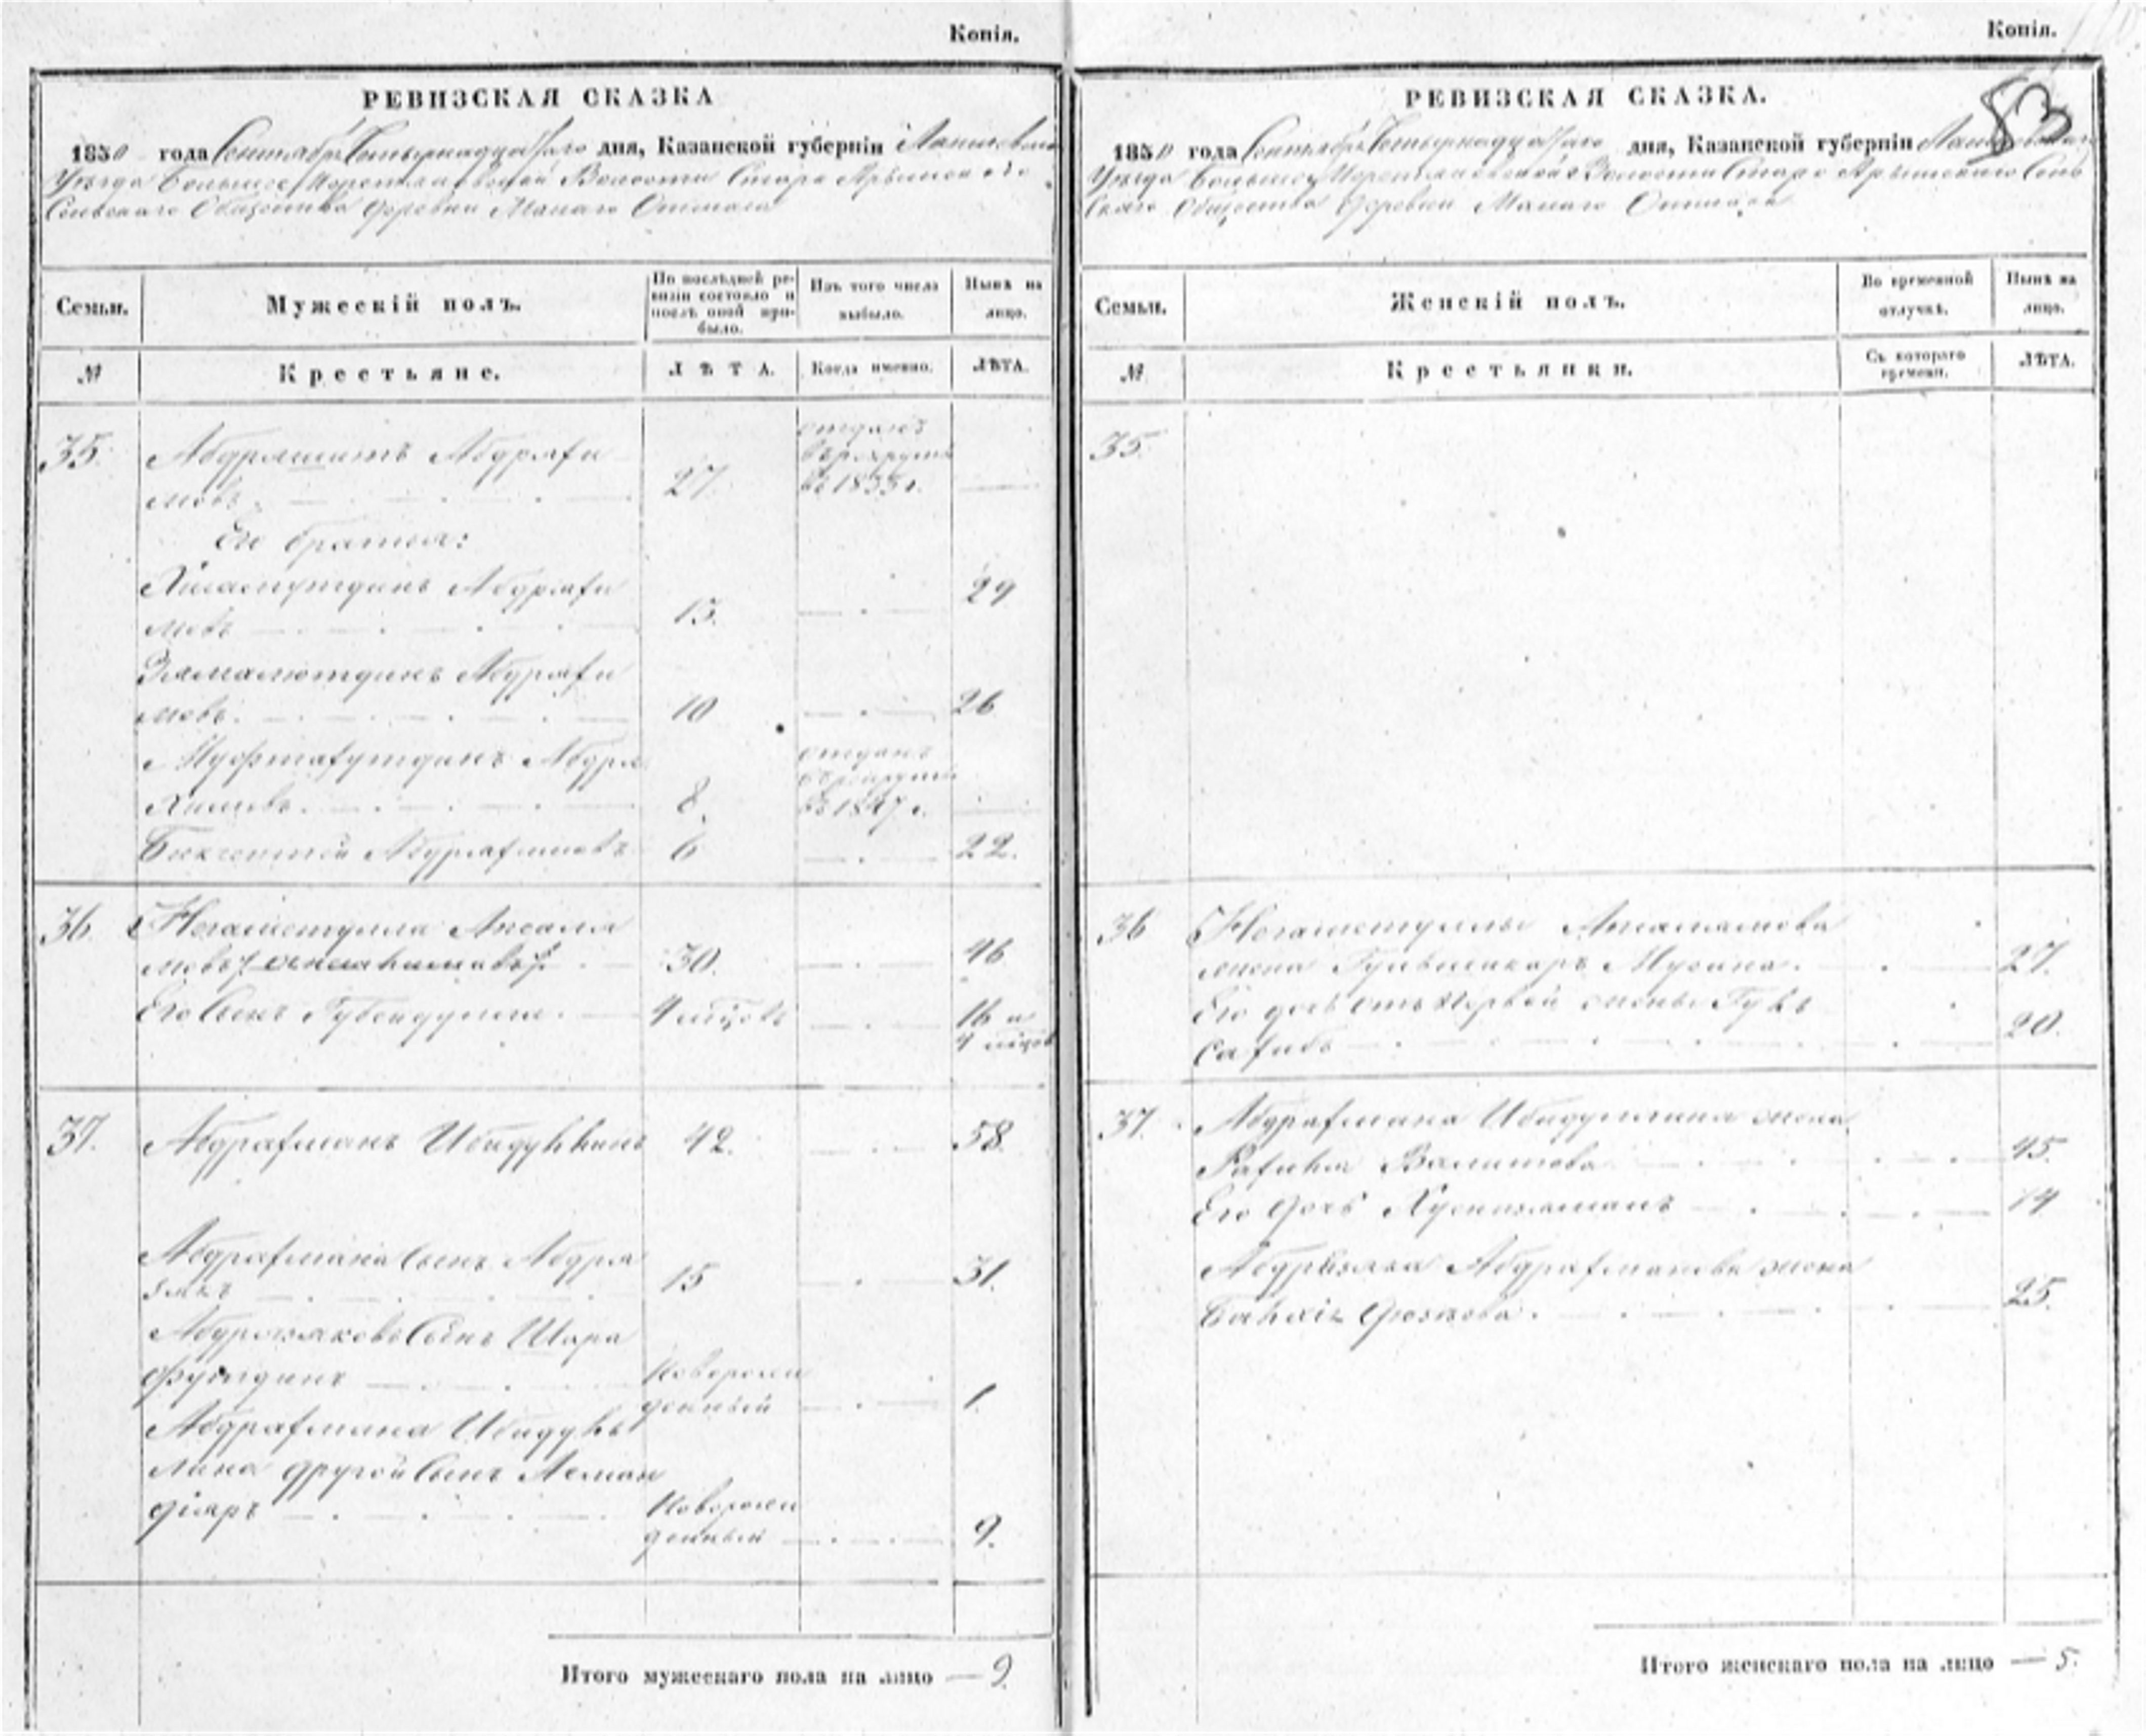 Копія.
РЕВИЗСКАЯ СКАЗКА
1850 года Сентября Четырнадцатаго дня, Казанской губерніи Лаишевскаго
Уѣзда Волости Старо Арышскаго
Сельскаго Общества деревни Малаго
Семьи.
Мужескій полъ.
По послѣдней ре-
визіи состояло и
послѣ оной при-
было.
Изъ того числа
выбыло.
Нынѣ на
лицо.
№
Крестьяне.
ЛѢТА.
Когда именно.
ЛѢТА.
35. Абдряшитъ Абдряхи
мовъ. 27 отданъ въ рекруты въ 1835 г.
Его братья:
Абдряхи
мовъ 13. 29
Зямалютдинъ Абдряхи
мовъ. 10 26
Абдря
химовъ. 8. отданъ въ рекруты въ 1847 г.
Абдряхимовъ 6 22.
36.
30. 46
Его сынъ Губейдулла. 4 мѣсцовъ 16 и
4 мѣсцов
37. Абдрахманъ Ибидуллинъ 42. 58.
Абдрахмана сынъ Абдря
зякъ 15 31.
Абдрязяковъ сынъ Шара
футдинъ новорож
денный 1.
Абдрахмана Ибидул
лина другой сынъ Асман
діяръ новорож
денный 9.
Итого мужескаго пола на лицо — 9.
Копія.
53
РЕВИЗСКАЯ СКАЗКА.
1850 года Сентября Четырнадцатаго дня, Казанской губерніи Лаишевскаго
Уѣзда Волости Старо Арышскаго Сель
скаго Общества деревни Малаго
Семьи.
Женскій полъ.
Во временной
отлучкѣ.
Нынѣ на
лицо.
№
Крестьянки.
Съ котораго
времени.
ЛѢТА.
35.
36
жена Мусина. 27.
Его дочь отъ первой жены Гуль
сахибъ 20.
37. Абдрахмана Ибидуллина жена
Рахиля Валитова 45.
Его дочь Хуснизяманъ 14
Абдрязяка Абдрахманова жена
25.
Итого женскаго пола на лицо — 5.